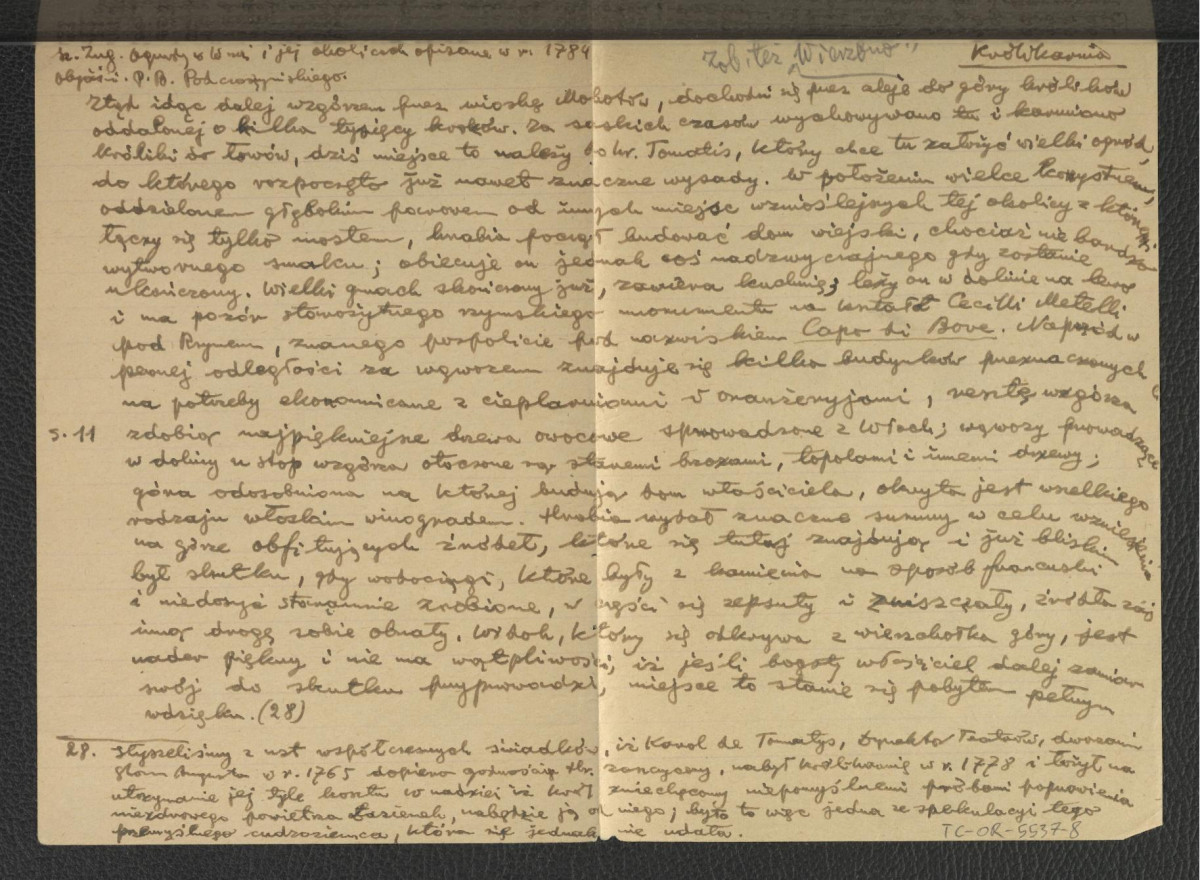 Sz. Zug. Ogrody w W-wie i jej okolicach opisane w r. 1784
Zob. też Wierzbno
Królikarnia
objaśn. P. B. Podczaszyńskiego.
Ztąd idąc dalej wzgórzem przez wioskę Mokotów, dochodzi się przez aleję do góry królików
oddalonej o kilka tysięcy kroków. Za saskich czasów wychowywano tu i karmiono
króliki do łowów, dziś miejsce to należy do hr. Tomatis, który chce tu założyć wielki ogród,
do którego rozpoczęto już nawet znaczne wysady. W położeniu wielce korzystnem,
oddzielonem głębokim parowem od innych miejsc wznioślejszych tej okolicy z którą
łączy się tylko mostem, hrabia począł budować dom wiejski, chociaż nie bardzo
wytwornego smaku; obiecuje on jednak coś nadzwyczajnego gdy zostanie
ukończony. Wielki gmach skończony już, zawiera kuchnię; leży on w dolinie na lewo
i ma pozór starożytnego rzymskiego monumentu na kształt Cecilii Metelli
pod Rzymem, znanego pospolicie pod nazwiskiem Capo di Bove. Naprzód w
pewnej odległości za wąwozem znajduje się kilka budynków przeznaczonych
na potrzeby ekonomiczne z cieplarniami i oranżeryjami, resztę wzgórza
s. 11 zdobią najpiękniejsze drzewa owocowe sprowadzone z Włoch; wąwozy prowadzące
w doliny u stóp wzgórza otoczone są staremi brzozami, topolami i innemi drzewy;
góra odosobniona na której budują dom właściciela, okryta jest wszelkiego
rodzaju włoskim winogradem. Hrabia wydał znaczne summy w celu wzniesienia
na górze obfitujących źródeł, które się tutaj znajdują i już bliskim
był skutku, gdy wodociągi, które były z kamienia na sposób francuski
i niedosyć starannie zrobione, w części się zepsuły i zniszczały, źródła zaś
inną drogę sobie obrały. Widok, który się odkrywa z wierzchołka góry, jest
nader piękny i nie ma wątpliwości, iż jeśli bogaty właściciel dalej zamiar
swój do skutku przyprowadzi, miejsce to stanie się pobytem pełnym
wdzięku. (28)
28. Słyszeliśmy z ust współczesnych świadków, iż Karol de Tomatys, Dyrektor Teatrów, dworzanin
Stan. Augusta w r. 1765 dopiero godnością Hr. zaszczycony, nabył Królikarnię w r. 1778 i łożył na
utrzymanie jej tyle kosztu w nadziei iż król zniechęcony niepomyślnemi próbami poprawienia
niezdrowego powietrza Łazienek, nabędzie ją od niego; było to więc jedna ze spekulacyi tego
przemyślnego cudzoziemca, która się jednak nie udała.
TC-OR-5537-8